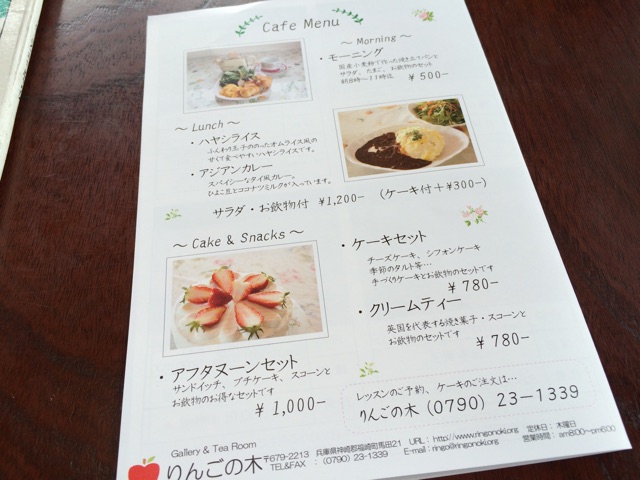 Cafe Menu
～ Morning ～
・モーニング
国産小麦粉で作った焼き立てパンと
サラダ、たまご、お飲物のセット
朝8時～11時迄 ¥500-
～ Lunch ～
・ハヤシライス
ふんわり玉子ののったオムライス風の
甘くて食べやすいハヤシライスです。
・アジアンカレー
スパイシーなタイ風カレー。
ひよこ豆とココナツミルクが入っています。
サラダ・お飲物付 ¥1,200- (ケーキ付+¥300-)
～ Cake & Snacks ～
・ケーキセット
チーズケーキ、シフォンケーキ
季節のタルト等…
手づくりケーキとお飲物のセットです
¥780-
・クリームティー
英国を代表する焼き菓子・スコーンと
お飲物のセットです ¥780-
・アフタヌーンセット
サンドイッチ、プチケーキ、スコーンと
お飲物のお得なセットです
¥1,000-
レッスンのご予約、ケーキのご注文は…
りんごの木 (0790) 23-1339
Gallery & Tea Room
りんごの木
〒679-2213 兵庫県神崎郡福崎町馬田21
TEL&FAX : (0790) 23-1339
URL : http://www.ringonoki.org
E-mail : ringo@ringonoki.org
定休日: 木曜日
営業時間: am8:00～pm6:00